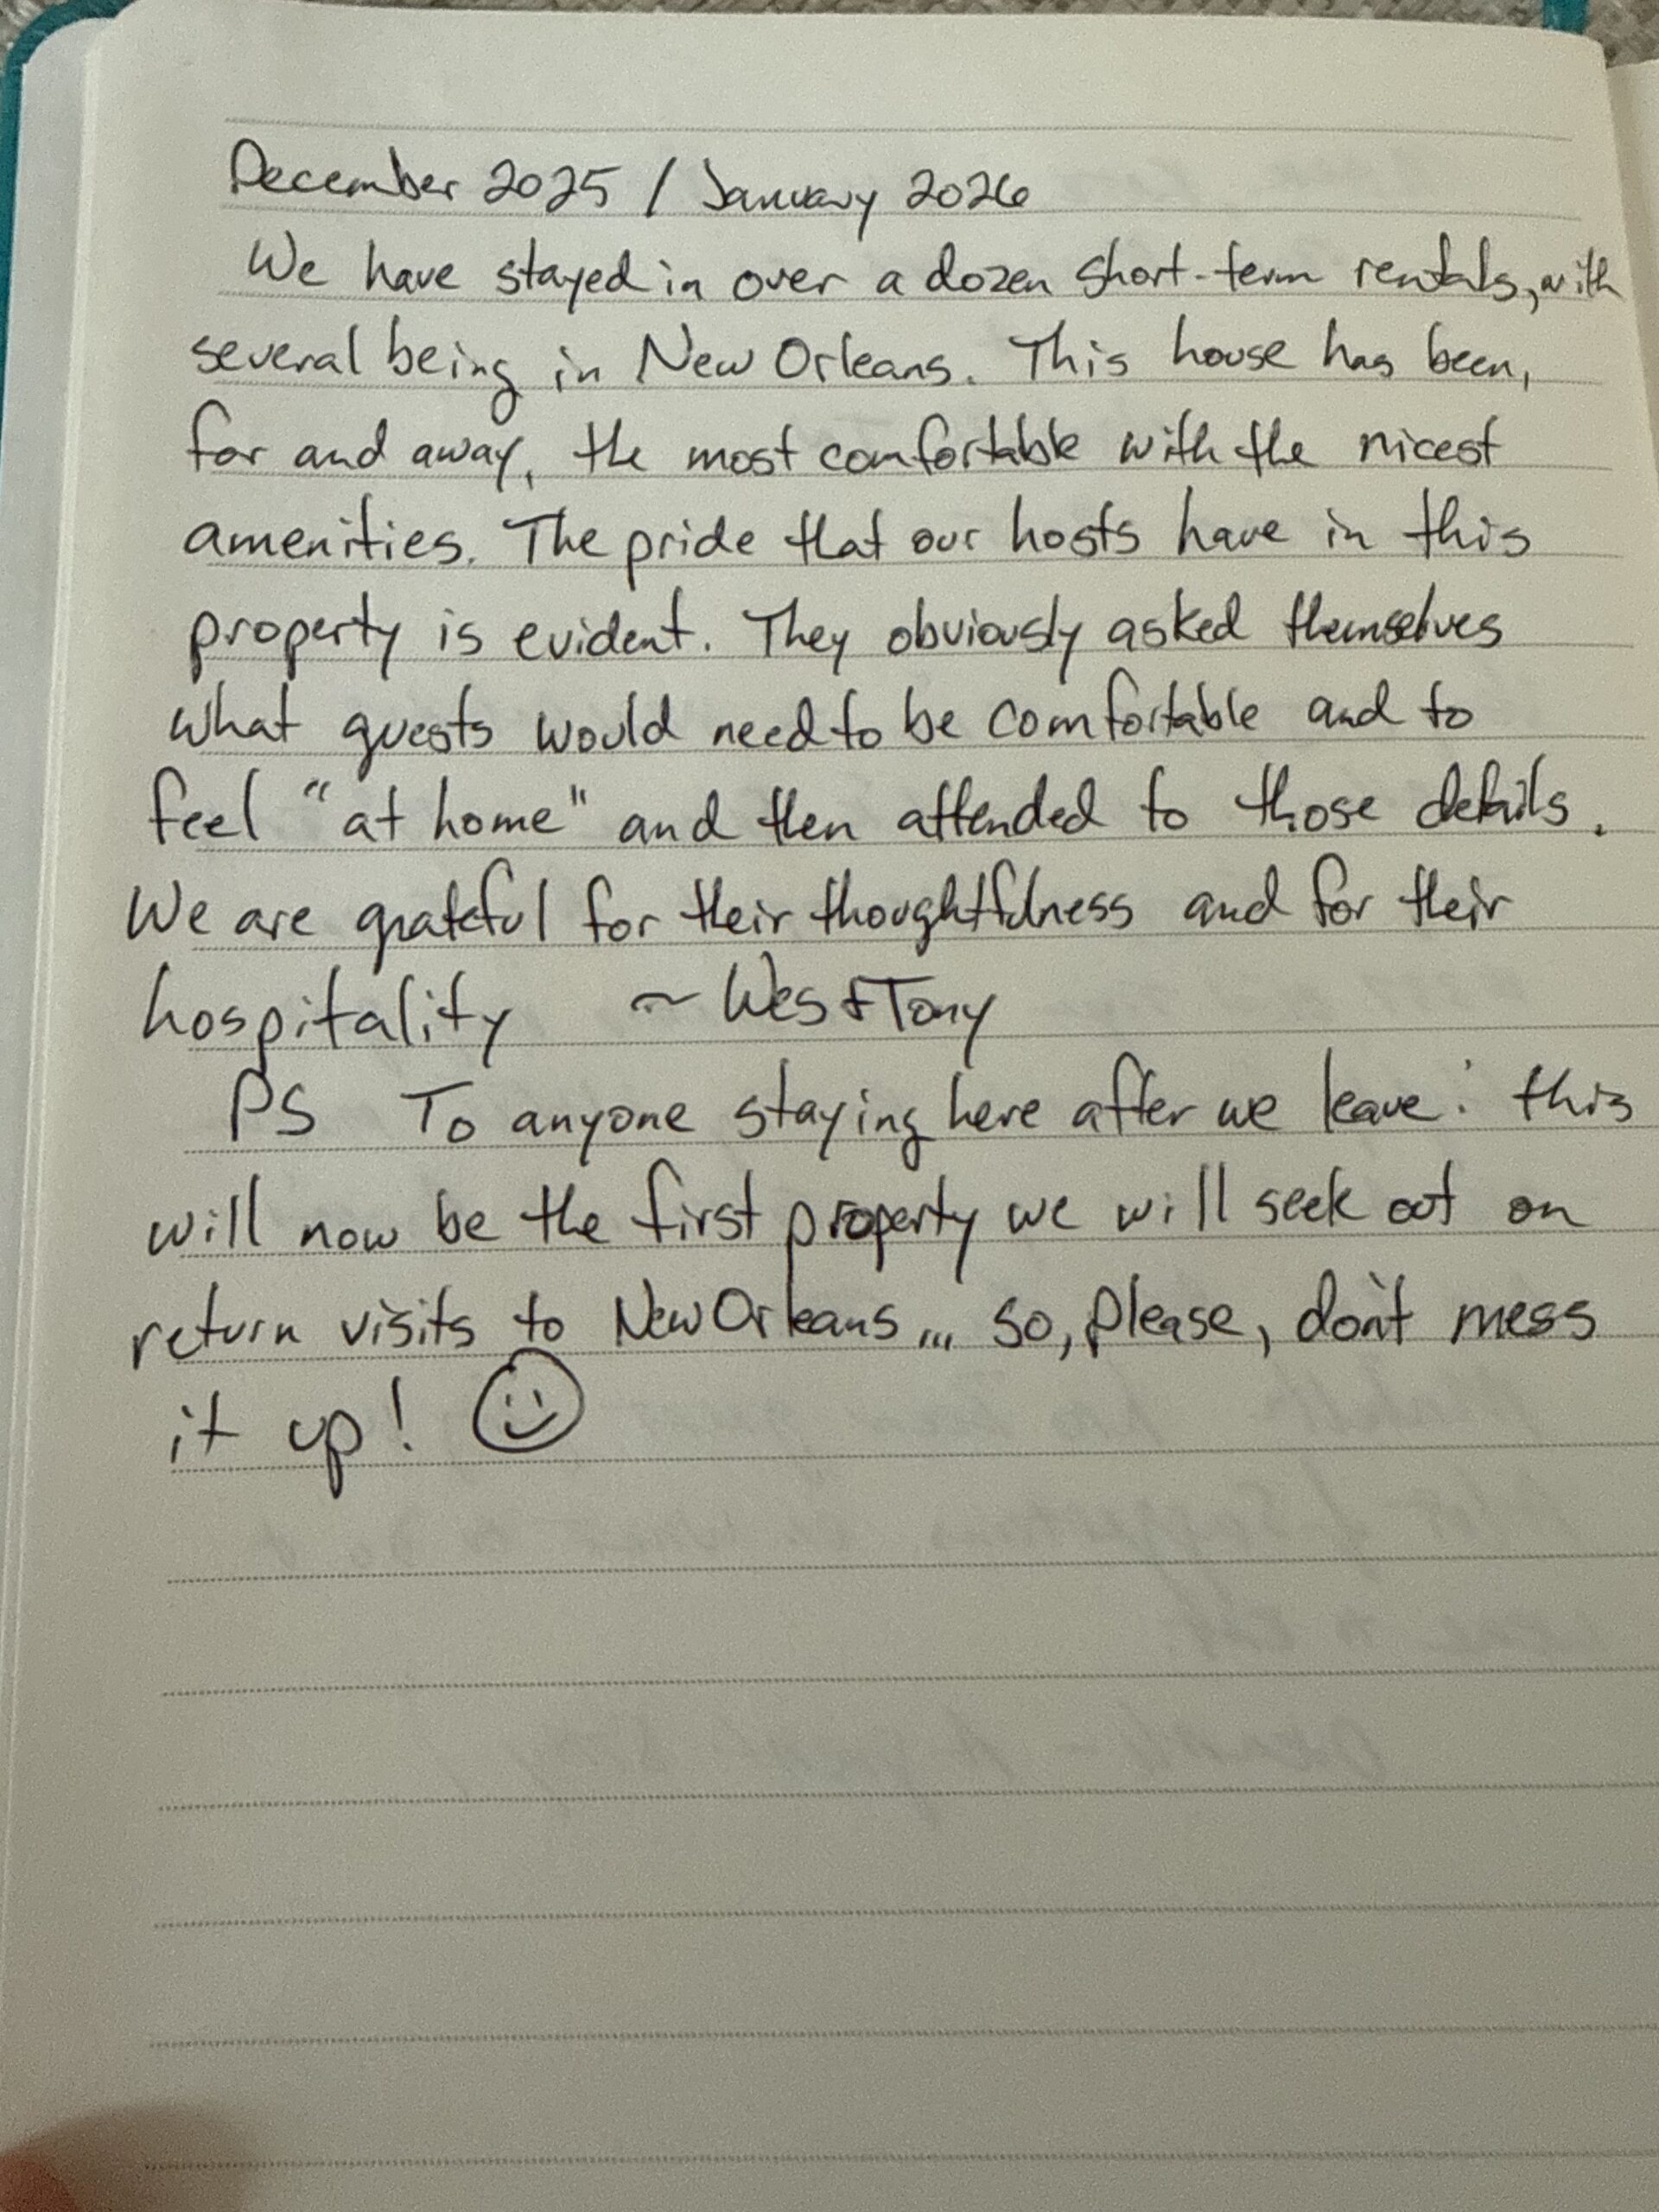 December 2025 / January 2026
We have stayed in over a dozen short-term rentals, with
several being in New Orleans. This house has been,
far and away, the most comfortable with the nicest
amenities. The pride that our hosts have in this
property is evident. They obviously asked themselves
what guests would need to be comfortable and to
feel "at home" and then attended to those details.
We are grateful for their thoughtfulness and for their
hospitality ~ Wes & Tony
PS To anyone staying here after we leave: this
will now be the first property we will seek out on
return visits to New Orleans... so, please, don't mess
it up! ☺